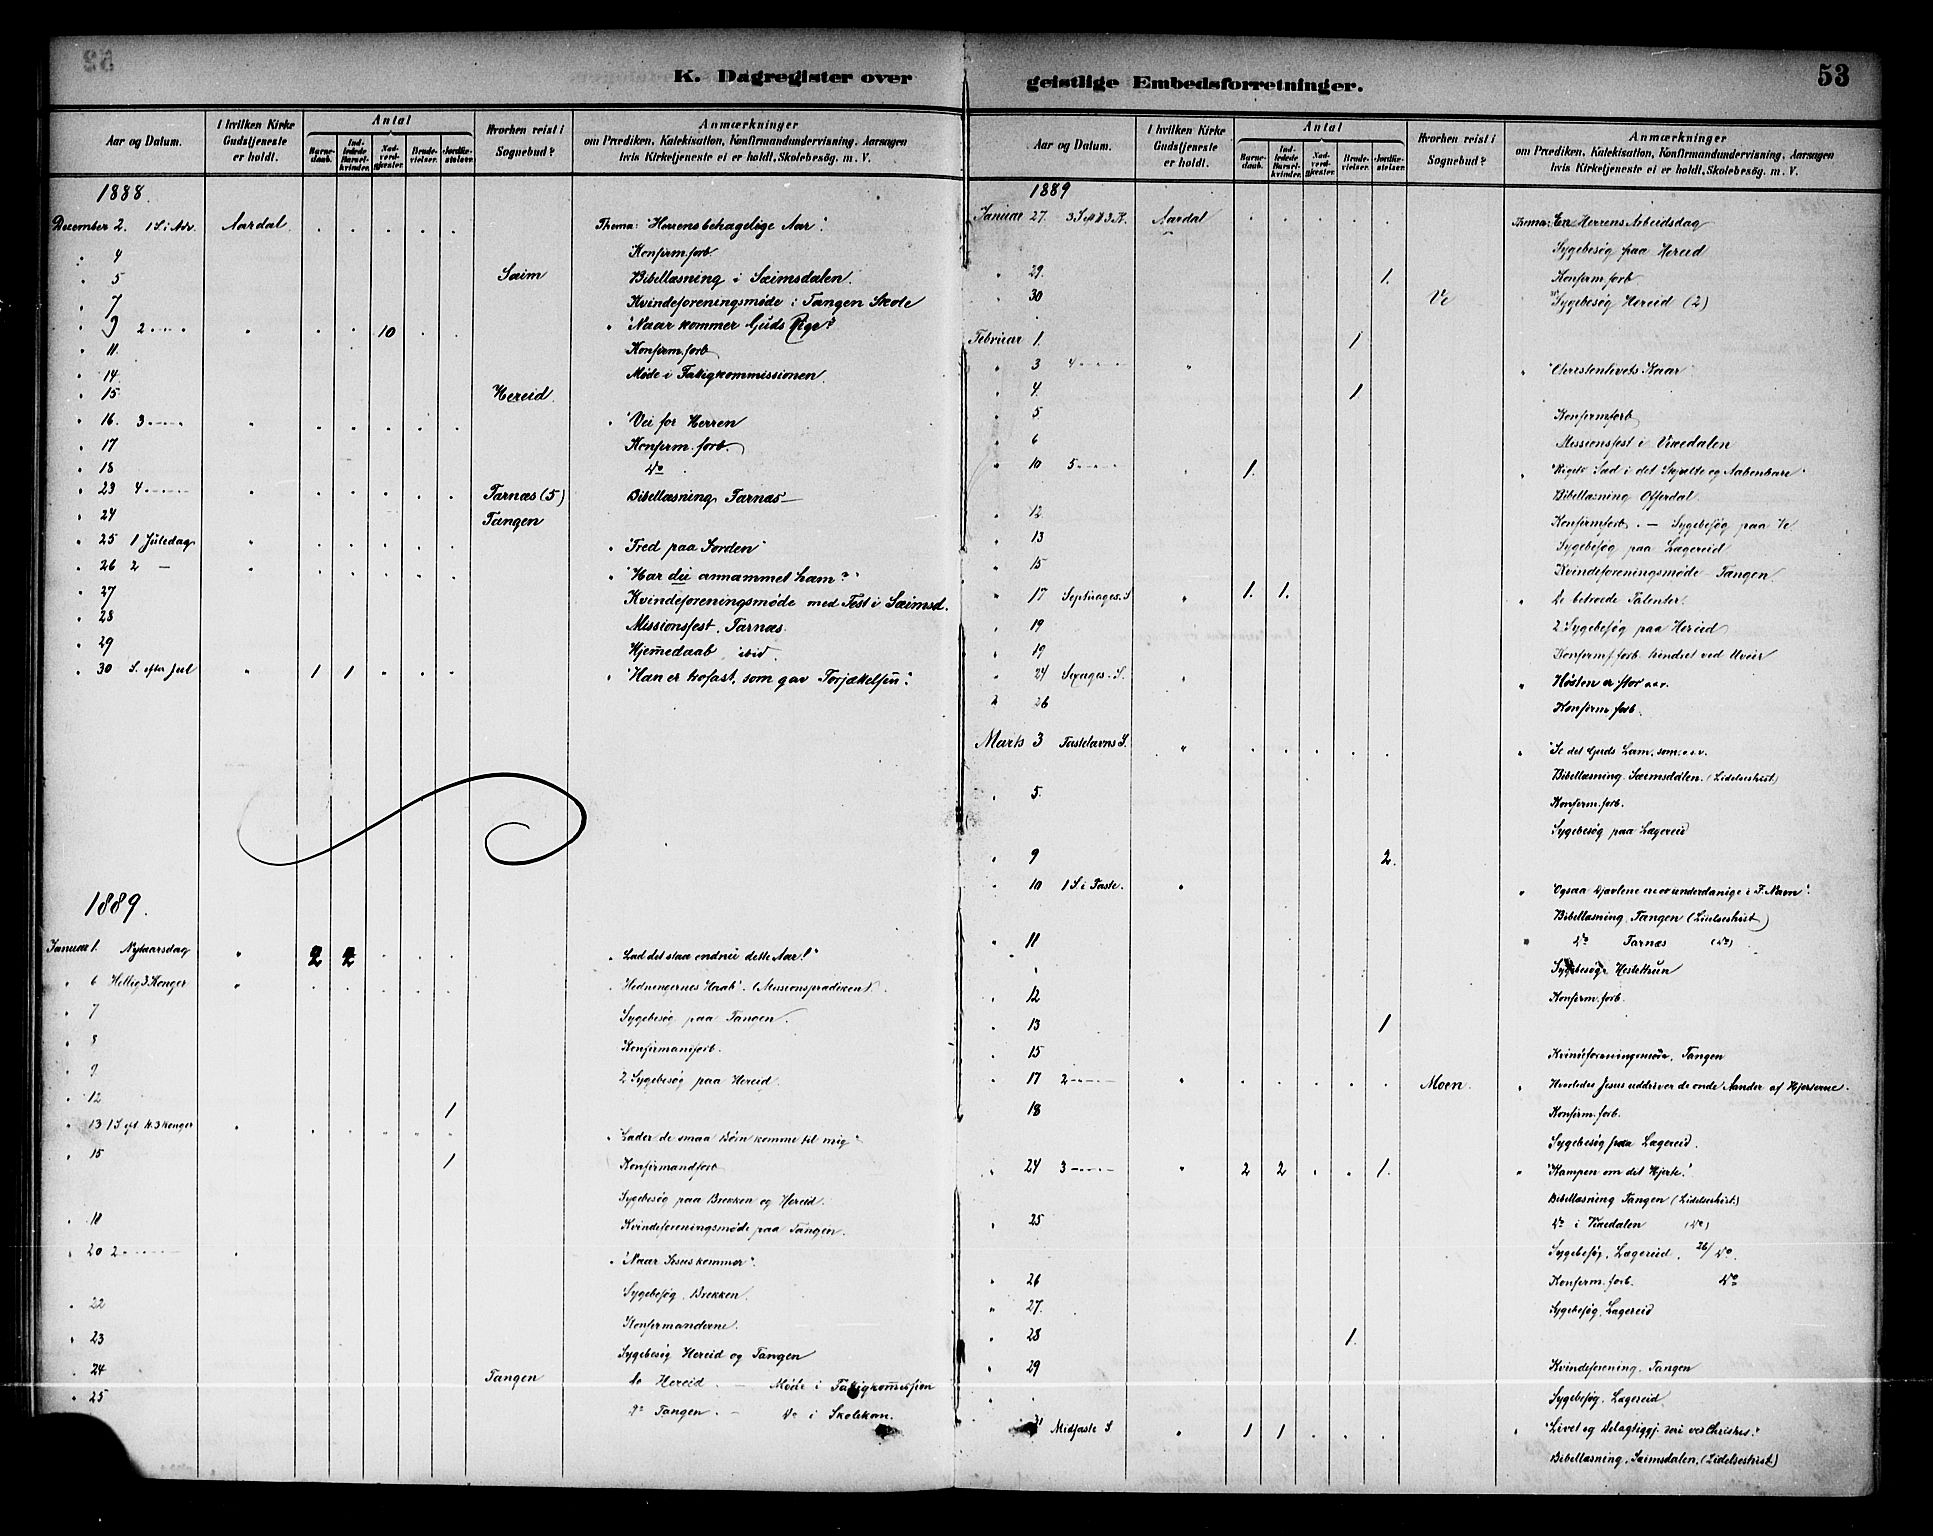 K. Dagregister over geistlige Embedsforretninger. 53
Aar og Datum. I hvilken Kirke Gudstjeneste er holdt. Antal Barnedaab. Indledede Barselkvinder. Nadverdgjester. Brudevielser. Jordfæstelser. Hvorhen reist i Sognebud? Anmærkninger om Prædiken, Katekisation, Konfirmandundervisning, Aarsagen hvis Kirketjeneste ei er holdt, Skolebesög. m. V.
1888.
December 2. 1 S. i Adv. Aardal . . . . . Thema: "Herrens behagelige Aar".
" 4 Konfirm.forb.
" 5 Sæim Bibellæsning i Sæimsdalen.
" 7 Kvindeforeningsmøde i Tangen Skole
" 9 2 - - - " . . 10 . . " "Naar kommer Guds Rige?"
" 11. Konfirm.forb.
" 14. Møde i Fattigkommissionen.
" 15 Hereid.
" 16. 3 - - - - " . . . . . " "Vei for Herren
" 17 Konfirm.forb.
" 18 Do
" 23 4 - - - - " . . . . . Farnæs (5) Bibellæsning Farnæs -
" 24 Tangen
" 25 1 Juledag " . . . . . " "Fred paa Jorden"
" 26 2 - " . . . . . " "Har du annammet ham?"
" 27 Kvindeforeningsmøde med Fest i Sæimsd.
" 28 Missionsfest, Farnæs.
" 29 Hjemmedaab ibid.
" 30 S. efter Jul " 1 1 . . . " "Han er trofast, som gav Forjættelsen".
1889.
Januar 1. Nytaarsdag " 2 2 . . . " "Lad det staa endnu dette Aar!"
" 6 Hellig 3 Konger " . . . . . "Hedningernes Haab". (Missionsprædiken).
" 7 Sygebesøg paa Tangen.
" 8 Konfirmantforb.
" 9 2 Sygebesøg paa Hereid.
" 12 1
" 13 1 S. eft. H. 3 Konger " . . . . . " "Lader de smaa Børn komme til mig"
" 15 1 Konfirmandforb
Sygebesøg paa Brekken og Hereid.
" 18 Kvindeforeningsmøde paa Tangen.
" 20 2 - - - - " " "Naar Jesus kommer".
Sygebesøg, Brekken.
" 22 Konfirmanderne.
" 23 Sygebesøg Hereid og Tangen
" 24 Tangen Do Hereid. - Møde i Fattigkommission
" 25 Do Tangen. - Do i Skolekom.
Aar og Datum. I hvilken Kirke Gudstjeneste er holdt. Antal Barnedaab. Indledede Barselkvinder. Nadverdgjester. Brudevielser. Jordfæstelser. Hvorhen reist i Sognebud? Anmærkninger om Prædiken, Katekisation, Konfirmandundervisning, Aarsagen hvis Kirketjeneste ei er holdt, Skolebesög. m. V.
1889
Januar 27. 3 S. eft H 3 K. Aardal . . . . . Thema: En Herrens Arbeidsdag
Sygebesøg paa Hereid
" 29. 1. Konfirm.forb
" 30 Ve Sygebesøg Hereid (2)
Februar 1. 1
" 3 4 - - - - " " "Christenlivets Kaar"
" 4. 1
" 5 Konfirmforb
" 6 Missionsfest i Vixedalen
" 10 5 - - - - " 1. " "Rigets Sæd i det Skjulte og Aabenbare"
Bibellæsning Offerdal.
" 12 Konfirmforb. - Sygebesøg paa Ve
" 13 Sygebesøg paa Lægereid
" 15 Kvindeforeningsmøde Tangen.
" 17 Septuages. S " 1. 1. " De betroede Talenter.
" 19 2 Sygebesøg paa Hereid
" 19 Konfirm.forb hindret ved Uveir
" 24 Sexages. S. " " Høsten er stor o.s.v.
" 26 Konfirm.forb.
Marts 3 Fastelavns S. " . . . . . " "Se det Guds Lam, som o.s.v.
Bibellæsning Sæimsdalen. (Lidelseshist)
" 5. Konfirm.forb.
Sygebesøg paa Lægereid
" 9 2.
" 10 1 S. i Faste. " " "Ogsaa Djævlene ere os underdanige i J. Navn".
Bibellæsning, Tangen (Lidelseshist)
" 11 Do Farnæs (Do)
" Sygebesøg Hestettun
" 12 Konfirm.forb.
" 13 1
" 15 Kvindeforeningsmøde, Tangen
" 17 2 - - - - " . . . . . Moen. " Hvorledes Jesus uddriver de onde Aander af Hjerterne.
" 18 Konfirm.forb.
Sygebesøg paa Lægereid.
" 24 3 - - - - " 2 2 . . 1. " "Kampen om det Hjerte."
Bibellæsning Tangen (Lidelseshist.)
" 25 Do i Vixedalen (Do)
Sygebesøg, Lægereid. 26/ Do.
" 26 Konfirm.forb. Do
" 27. Sygebesøg, Lægereid
" 28 1.
" 29 Kvindeforening, Tangen
" Sygebesøg, Lægereid
31 Midfaste S " 1 1 . . . " "Livet og Delagtiggj. deri ved Christus."
Bibellæsning, Sæimsdalen, (Lidelseshist)